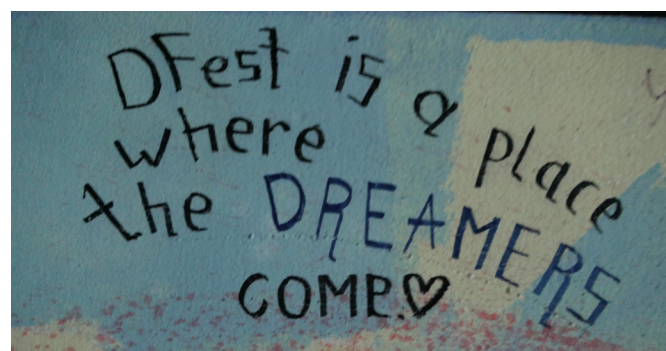 DFest is a place
where
the DREAMERS
COME.♡